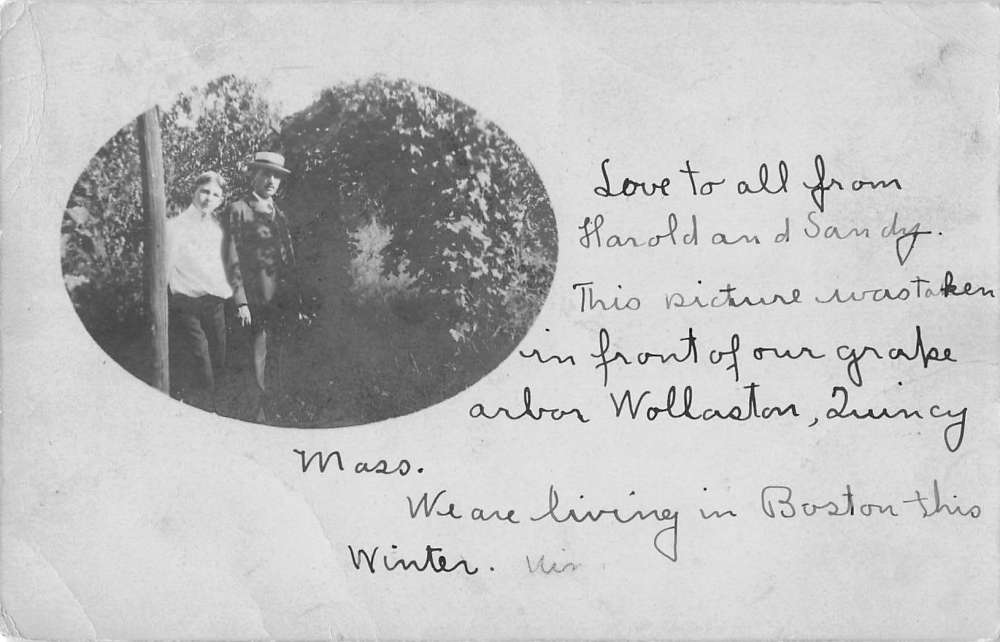 Love to all from
Harold and Sandy.
This picture was taken
in front of our grape
arbor Wollaston, Quincy
Mass.
We are living in Boston this
Winter.